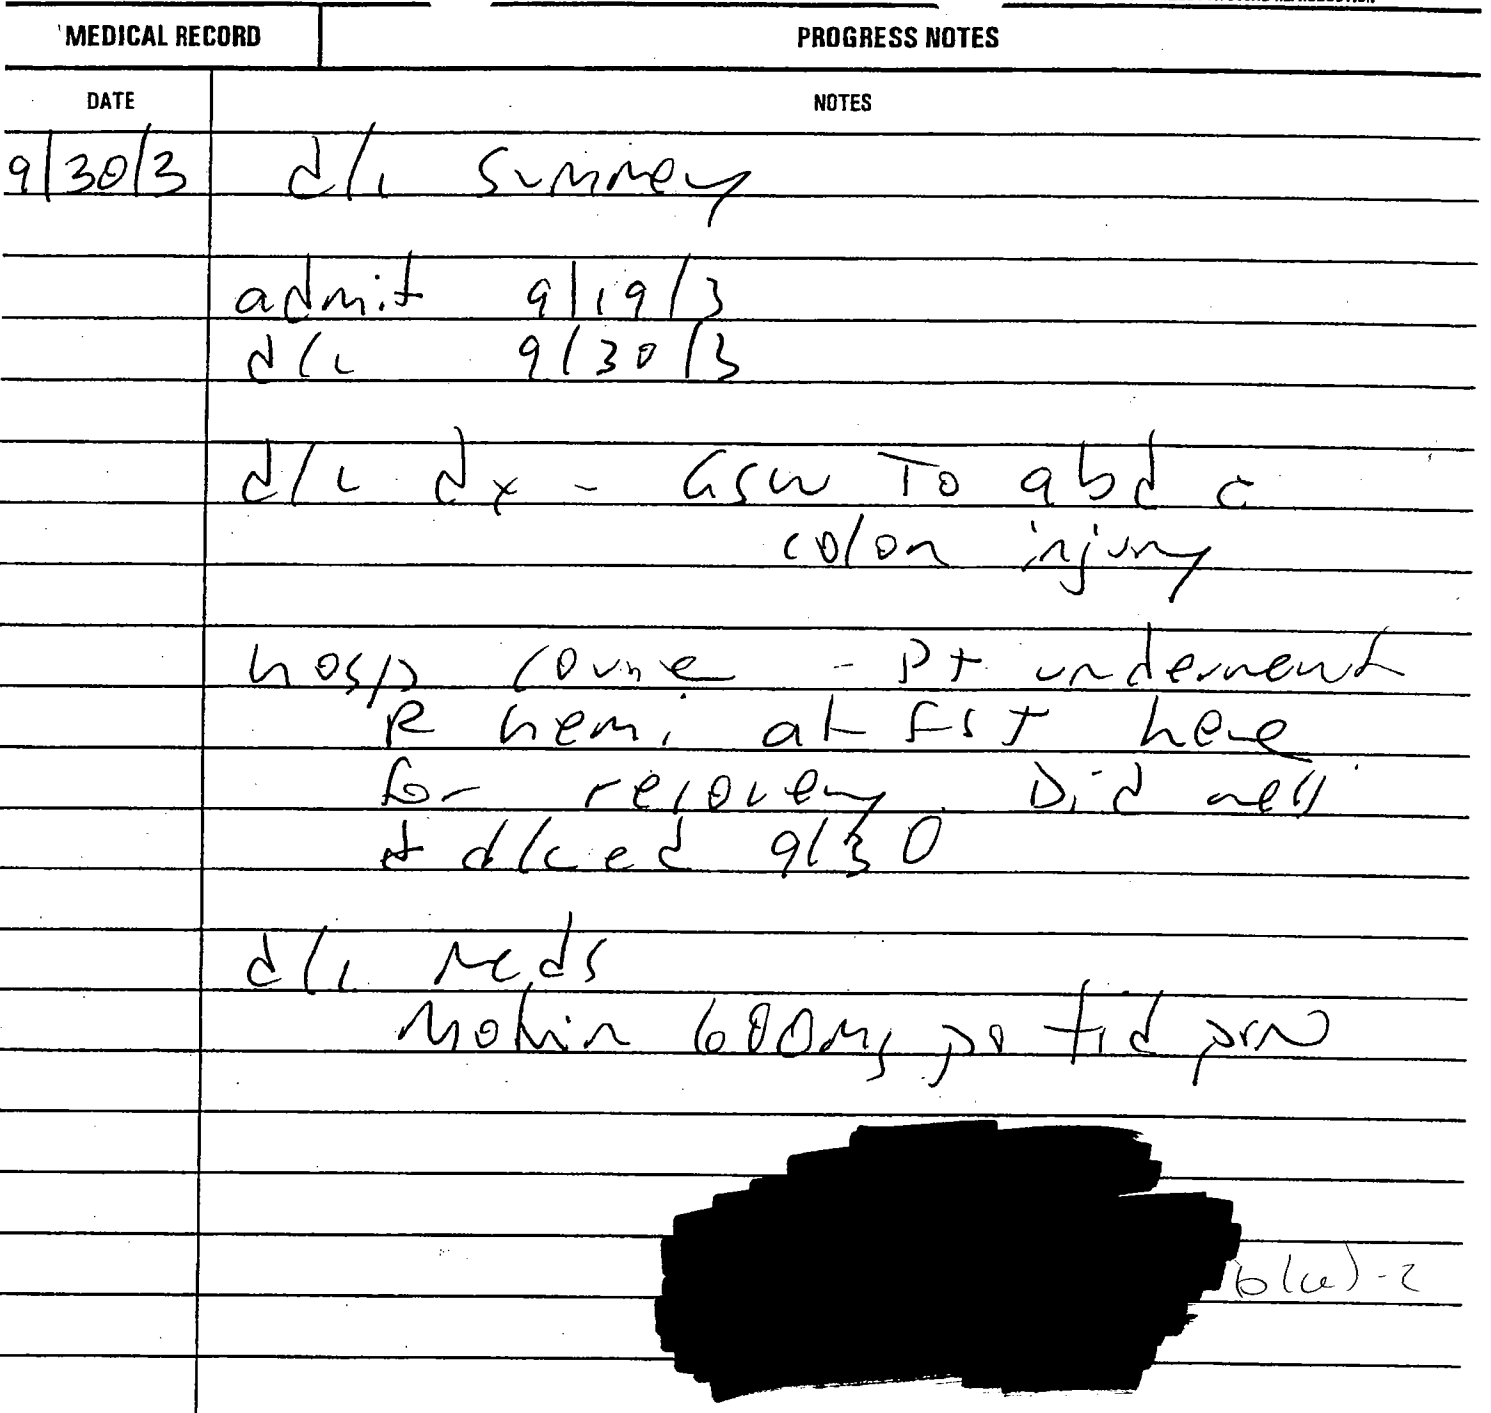 MEDICAL RECORD PROGRESS NOTES
DATE NOTES
9/30/3 d/c Summary
admit 9/19/3
d/c 9/30/3
d/c dx - GSW To abd c
colon injury
hosp course - Pt underwent
R hemi at FST here
for recovery. Did well
+ d/ced 9/30
d/c Meds
Motrin 600mg po tid prn
b(6)-2